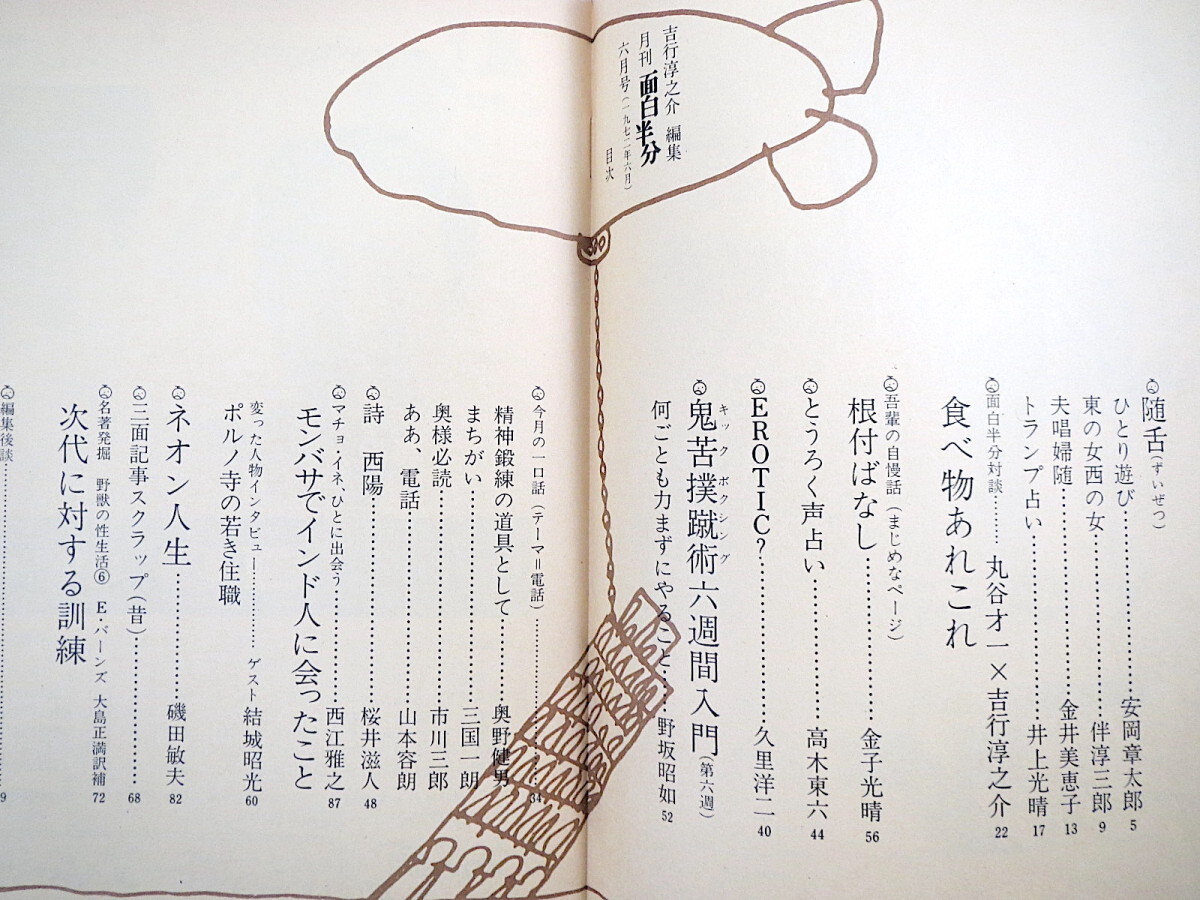 吉行淳之介 編集
月刊 面白半分
六月号(一九七二年六月)
目次
随舌(ずいぜつ)
ひとり遊び…………安岡章太郎 5
東の女西の女…………伴淳三郎 9
夫唱婦随…………金井美恵子 13
トランプ占い…………井上光晴 17
面白半分対談………丸谷才一×吉行淳之介 22
食べ物あれこれ
吾輩の自慢話(まじめなページ)
根付ばなし…………金子光晴 56
とうろく声占い…………高木東六 44
EROTIC?…………久里洋二 40
鬼苦撲蹴術六週間入門(第六週)
キック ボクシング
何ごとも力まずにやること……野坂昭如 52
今月の一口話(テーマ=電話)…………34
精神鍛練の道具として…………奥野健男
まちがい…………三国一朗
奥様必読…………市川三郎
ああ、電話…………山本容朗
詩 西陽…………桜井滋人 48
マチョ・イネ、ひとに出会う…………西江雅之 87
モンバサでインド人に会ったこと
変った人物インタビュー………… ゲスト 結城昭光 60
ポルノ寺の若き住職
ネオン人生…………磯田敏夫 82
三面記事スクラップ(昔)…………68
名著発掘 野獣の性生活⑥ E・バーンズ 大島正満訳補 72
次代に対する訓練
編集後談…………9